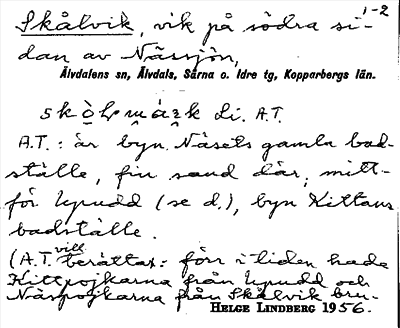 1-2
Skålvik, vik på södra si-
dan av Nässjön,
Älvdalens sn, Älvdals, Särna o. Idre tg, Kopparbergs län.
Li. A.T.
A.T.: är byn Näsets gamla bad-
ställe, fin sand där, mitt-
för Lyrudd (se d.), byn Kittans
badställe.
(A.T. vill berättat: förr i tiden hade
Kittpojkarna från Lyrudd och
Näspojkarna från Skålvik bru-
HELGE LINDBERG 1956.